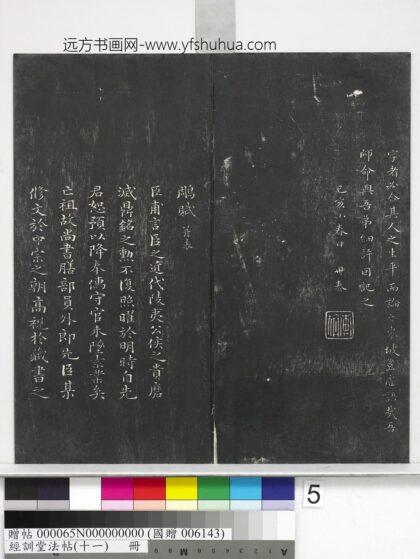 远方书画网-www.yfshuhua.com
字者必合其人之生平而論 坡豈虛語哉吾
師命與吾弟細評因記之
己亥小春日
鵰賦 并表
臣甫言臣之近代陵夷公侯之貴磨
滅鼎銘之勳不復照曜於明時自先
君恕預以降奉儒守官未墜素業矣
亡祖故尚書膳部員外郎先臣某
脩文於中宗之朝高視於藏書之
5
贈帖 000065N000000000 (國贈 006143)
經訓堂法帖(十一) 冊